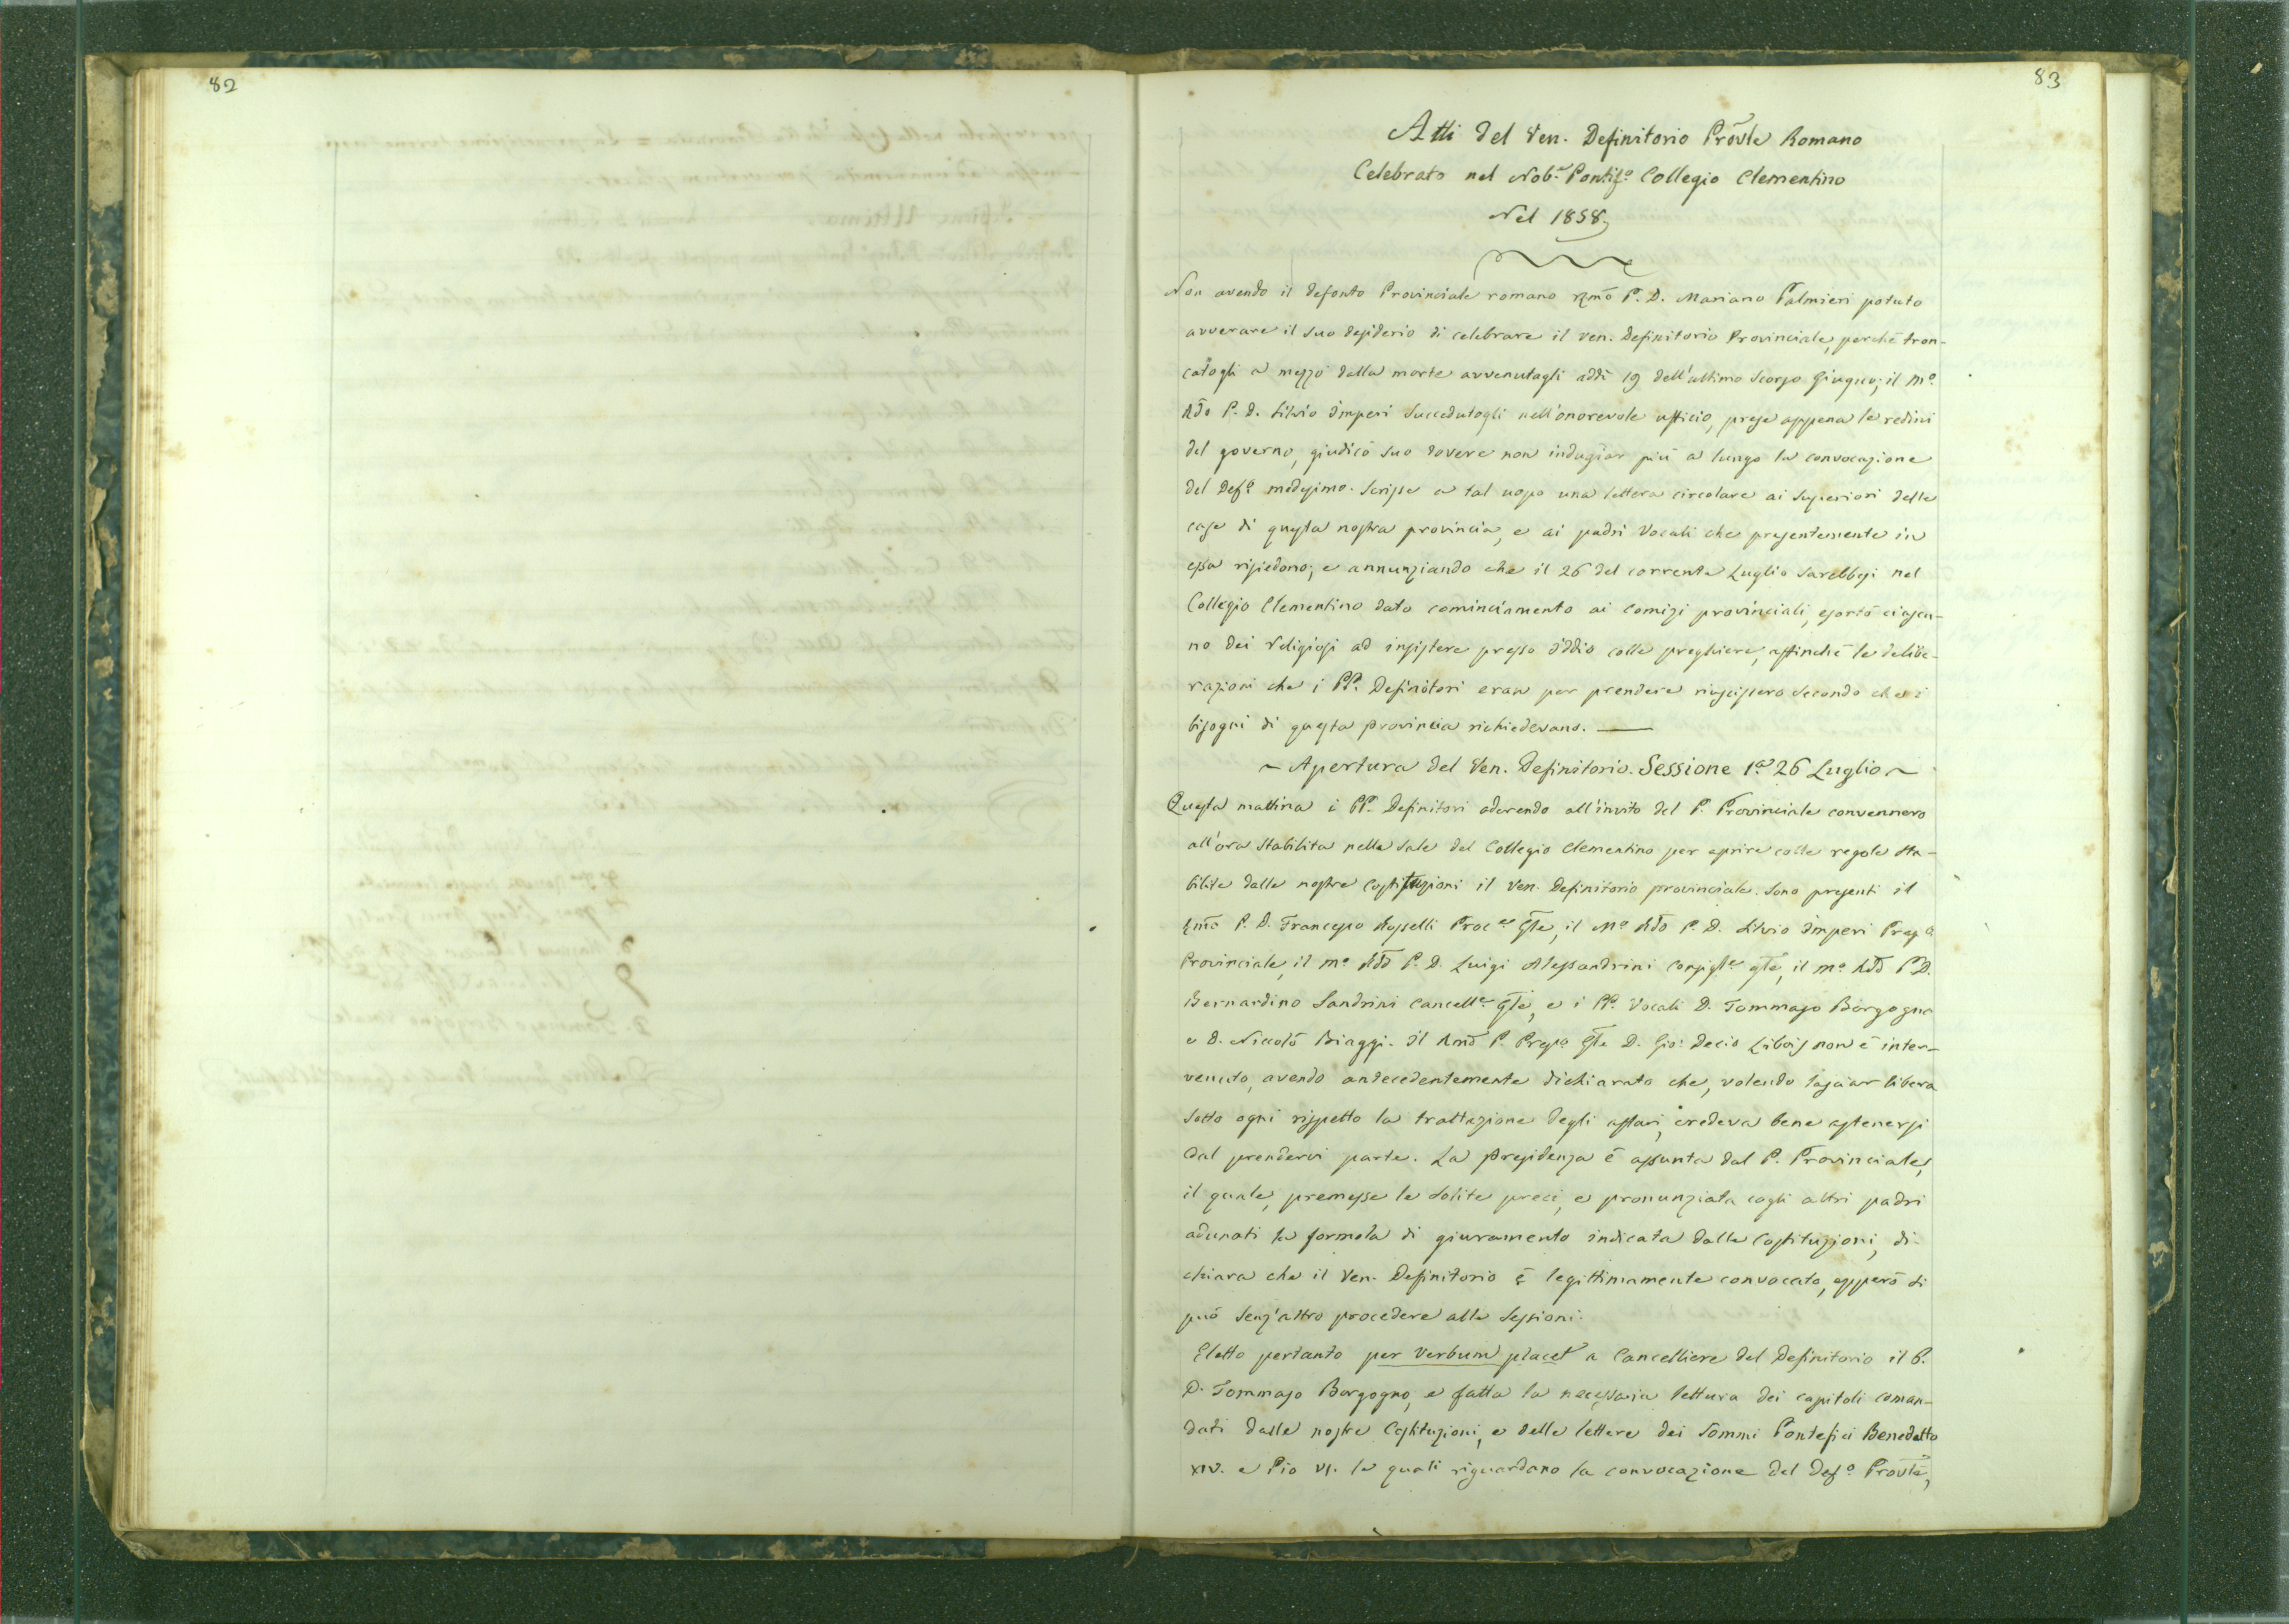 82
83
Atti del Ven. Definitorio Prov̄le Romano
Celebrato nel Nob.e Pontif.o Collegio Clementino
Nel 1858
Non avendo il defonto Provinciale romano Rm̄o P. D. Mariano Palmieri potuto
avverare il suo desiderio di celebrare il ven. Definitorio Provinciale, perchè tron-
catogli a mezzo dalla morte avvenutagli addì 19 dell'ultimo scorso Giugno; il M.o
Rd̄o P. D. Silvio Imperi succedutogli nell'onorevole ufficio, prese appena le redini
del governo, giudicò suo dovere non indugiar più a lungo la convocazione
del Def.o medesimo. Scrisse a tal uopo una lettera circolare ai Superiori delle
case di questa nostra provincia, e ai padri Vocali che presentemente in
essa risiedono; e annunziando che il 26 del corrente Luglio sarebbesi nel
Collegio Clementino dato cominciamento ai comizi provinciali, esortò ciascu-
no dei religiosi ad insistere presso Iddio colle preghiere, affinchè le delibe-
razioni che i PP. Definitori eran per prendere riuscissero secondo che i
bisogni di questa provincia richiedevano. —
~ Apertura del Ven. Definitorio. Sessione 1.a 26 Luglio ~
Questa mattina i PP. Definitori aderendo all'invito del P. Provinciale convennero
all'ora stabilita nelle sale del Collegio Clementino per aprire colle regole sta-
bilite dalle nostre costituzioni il Ven. Definitorio provinciale. Sono presenti il
Rm̄o P. D. Francesco Rosselli Proc.er Gl̄e, il M.o Rd̄o P. D. Silvio Imperi Prep.o
Provinciale, il m.o Rd̄o P. D. Luigi Alessandrini Consigl.e gl̄e, il m.o Rd̄o P. D.
Bernardino Sandrini Cancell.e Gl̄e, e i PP. Vocali D. Tommaso Borgogno
e D. Niccolò Biaggi. Il Rm̄o P. Prep.o Gl̄e D. Gio: Decio Libois non è inter-
venuto, avendo antecedentemente dichiarato che, volendo lasciar libera
sotto ogni rispetto la trattazione degli affari, credeva bene astenersi
dal prendervi parte. La Presidenza è assunta dal P. Provinciale,
il quale, premesse le solite preci, e pronunziata cogli altri padri
adunati la formola di giuramento indicata dalle Costituzioni, di-
chiara che il Ven. Definitorio è legittimamente convocato, epperò si
può senz'altro procedere alle sessioni.
Eletto pertanto per verbum placet a Cancelliere del Definitorio il P.
D. Tommaso Borgogno, e fatta la necessaria lettura dei capitoli coman-
dati dalle nostre Costituzioni, e delle lettere dei Sommi Pontefici Benedetto
XIV. e Pio VI. le quali riguardano la convocazione del Def.o Prov̄le,